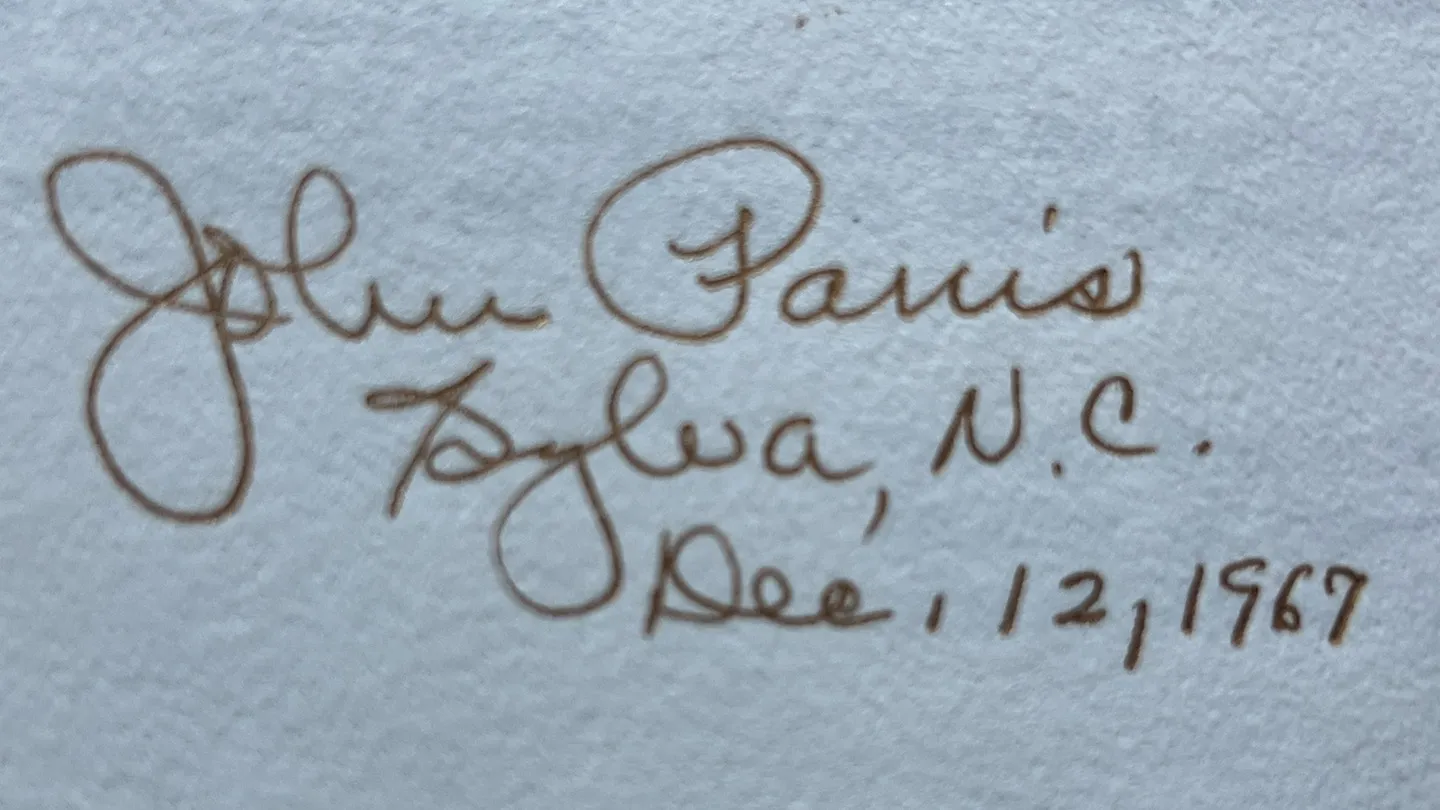 John Parris
Sylva, N.C.
Dec. 12, 1967